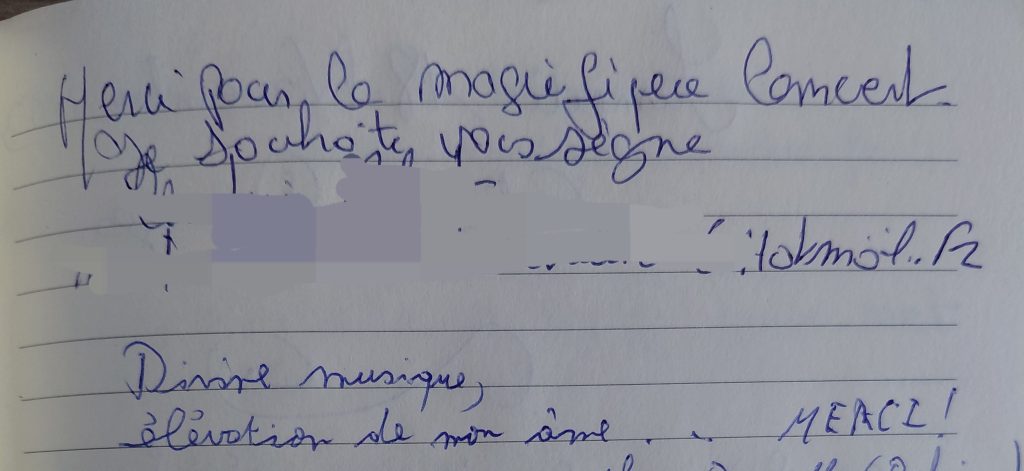 Merci pour le magnifique Concert.
Je souhaite vous
Divine musique,
élévation de mon âme... MERCI!